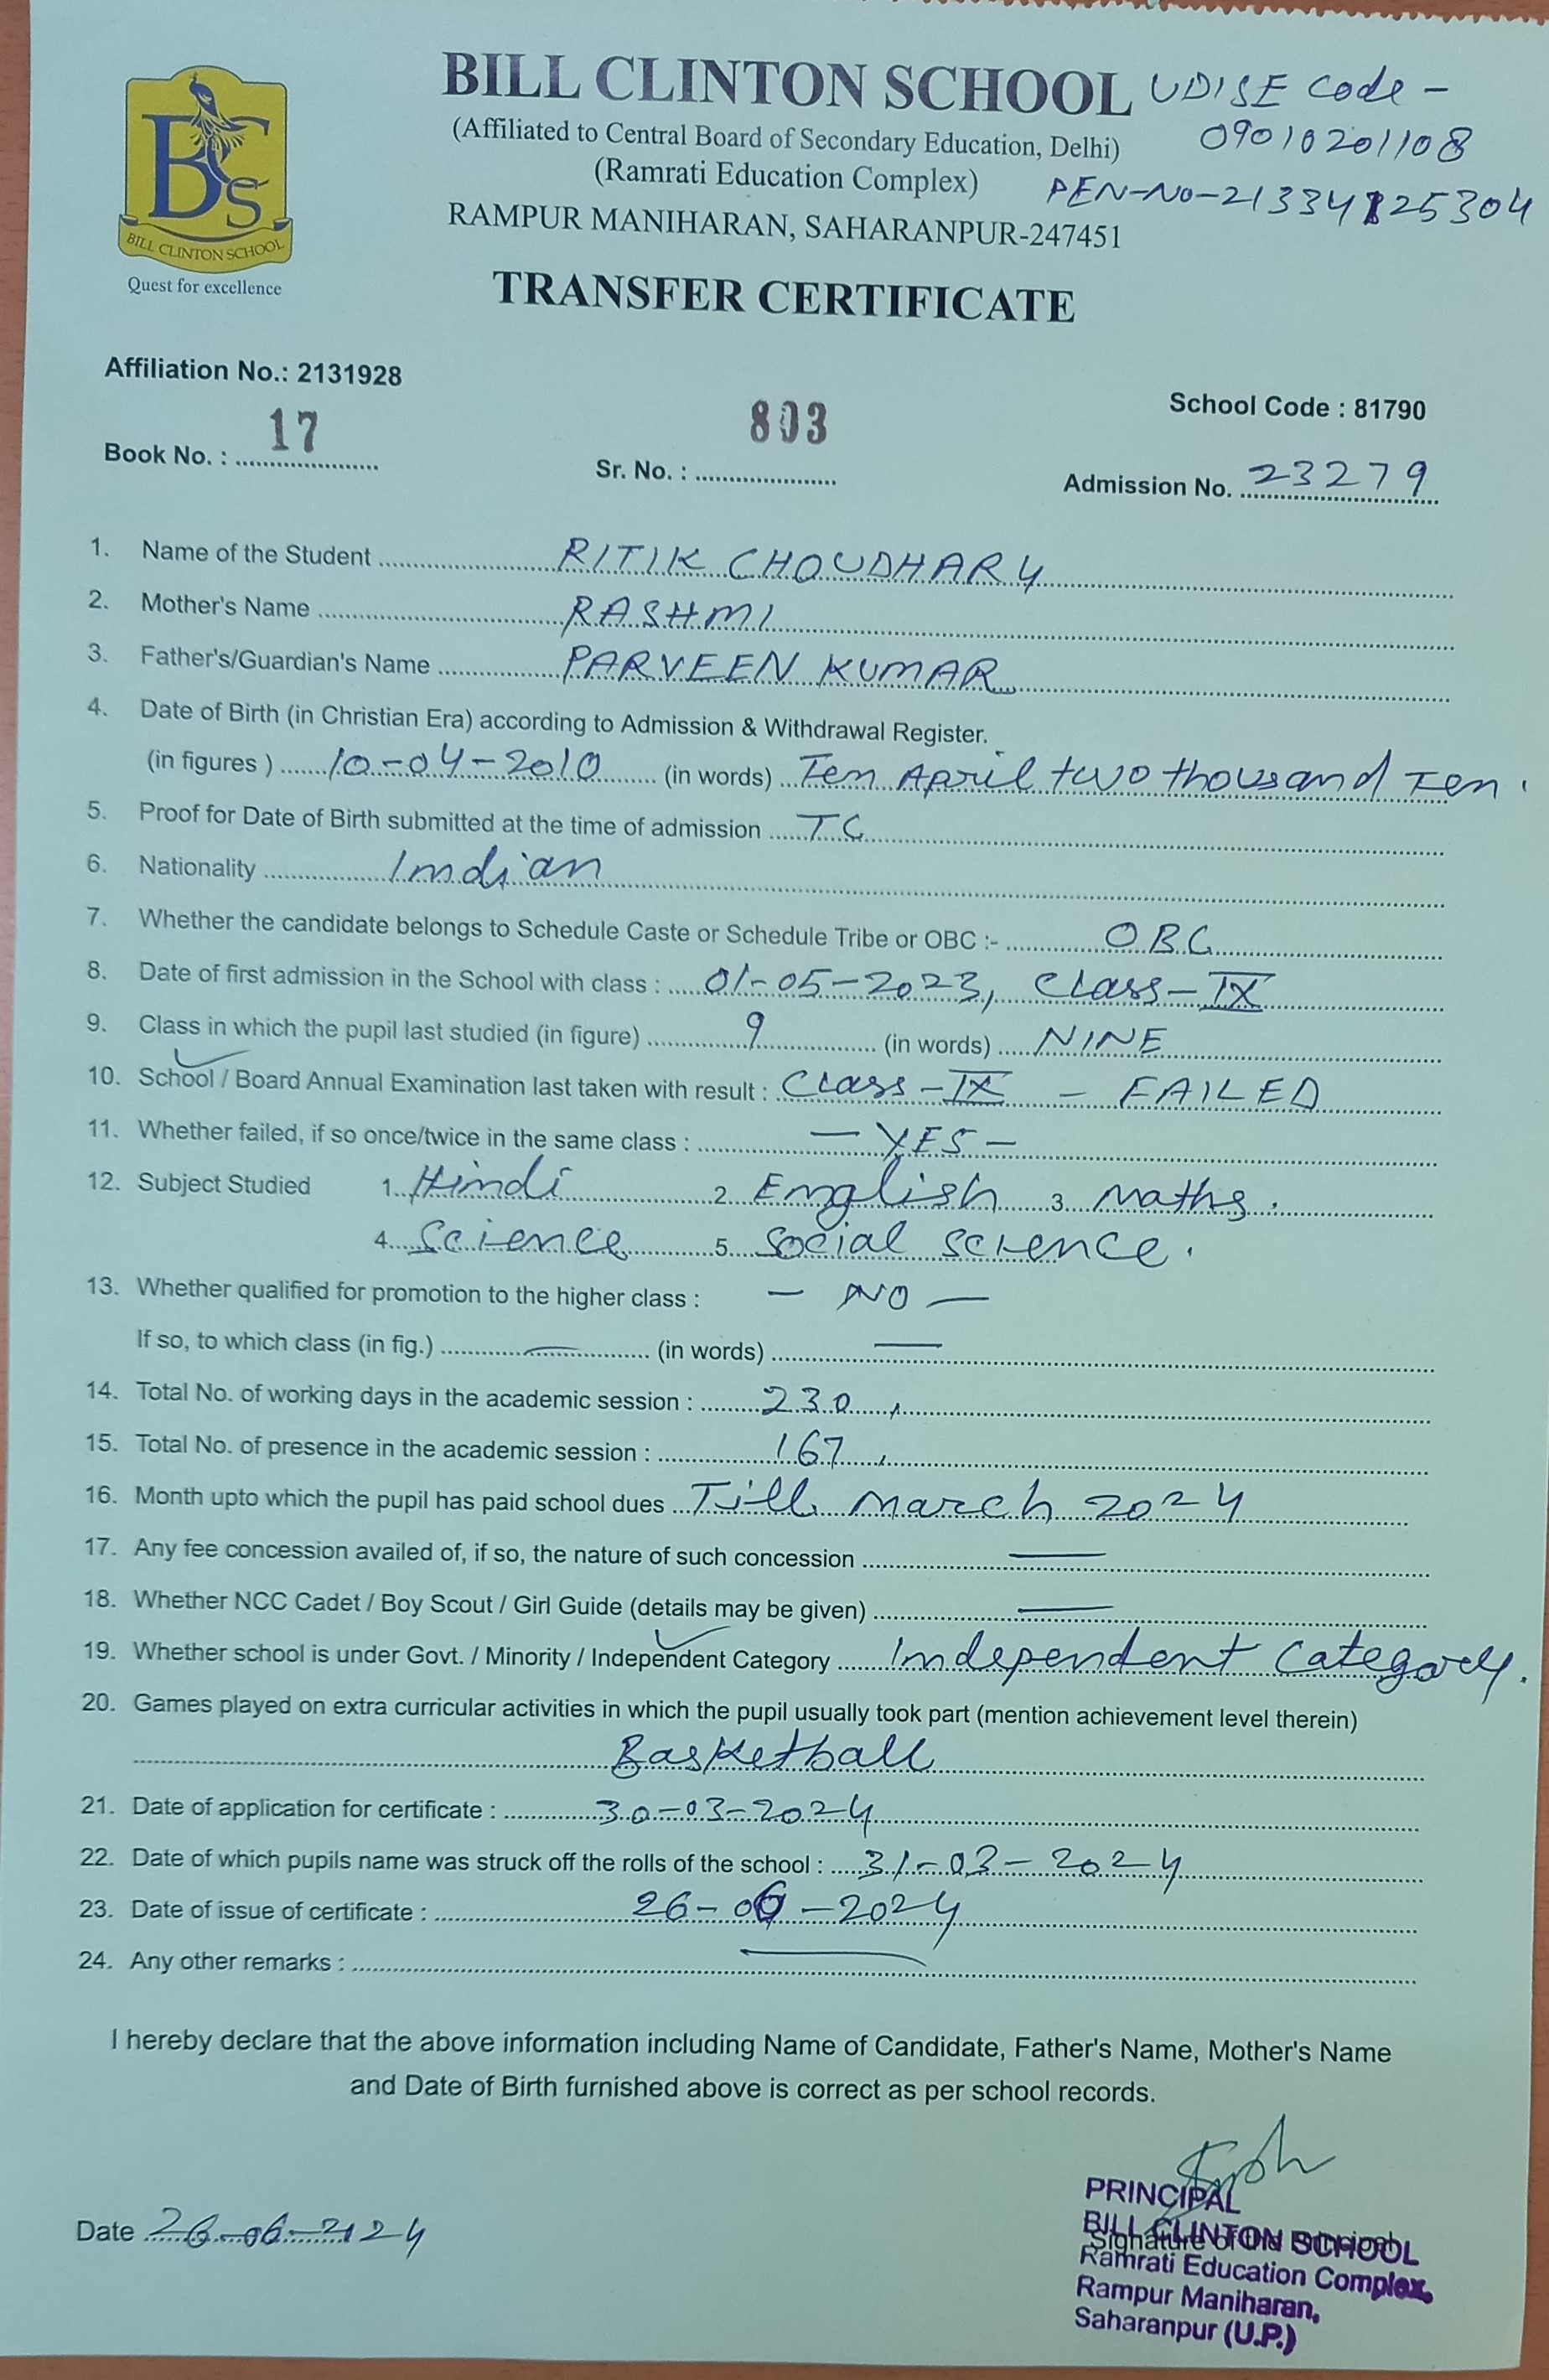 BILL CLINTON SCHOOL
UDISE Code -
09010201108
(Affiliated to Central Board of Secondary Education, Delhi)
(Ramrati Education Complex)
PEN-No-21334125304
RAMPUR MANIHARAN, SAHARANPUR-247451
BCS
BILL CLINTON SCHOOL
Quest for excellence
TRANSFER CERTIFICATE
Affiliation No.: 2131928
School Code : 81790
Book No. : 17 Sr. No. : 803 Admission No. 23279
1. Name of the Student RITIK CHOUDHARY
2. Mother's Name RASHMI
3. Father's/Guardian's Name PARVEEN KUMAR
4. Date of Birth (in Christian Era) according to Admission & Withdrawal Register.
(in figures ) 10-04-2010 (in words) Ten April two thousand Ten.
5. Proof for Date of Birth submitted at the time of admission TC
6. Nationality Indian
7. Whether the candidate belongs to Schedule Caste or Schedule Tribe or OBC :- OBC
8. Date of first admission in the School with class : 01-05-2023, Class-IX
9. Class in which the pupil last studied (in figure) 9 (in words) NINE
10. School / Board Annual Examination last taken with result : Class-IX - FAILED
11. Whether failed, if so once/twice in the same class : - YES -
12. Subject Studied 1. Hindi 2. English 3. Maths.
4. Science 5. Social Science.
13. Whether qualified for promotion to the higher class : - NO -
If so, to which class (in fig.) — (in words) —
14. Total No. of working days in the academic session : 230,
15. Total No. of presence in the academic session : 167,
16. Month upto which the pupil has paid school dues Till March 2024
17. Any fee concession availed of, if so, the nature of such concession —
18. Whether NCC Cadet / Boy Scout / Girl Guide (details may be given) —
19. Whether school is under Govt. / Minority / Independent Category Independent Category.
20. Games played on extra curricular activities in which the pupil usually took part (mention achievement level therein)
Basketball
21. Date of application for certificate : 30-03-2024
22. Date of which pupils name was struck off the rolls of the school : 31-03-2024
23. Date of issue of certificate : 26-06-2024
24. Any other remarks : —
I hereby declare that the above information including Name of Candidate, Father's Name, Mother's Name
and Date of Birth furnished above is correct as per school records.
Date 26-06-2024
PRINCIPAL
BILL CLINTON SCHOOL
Signature of the Principal
Ramrati Education Complex,
Rampur Maniharan,
Saharanpur (U.P.)